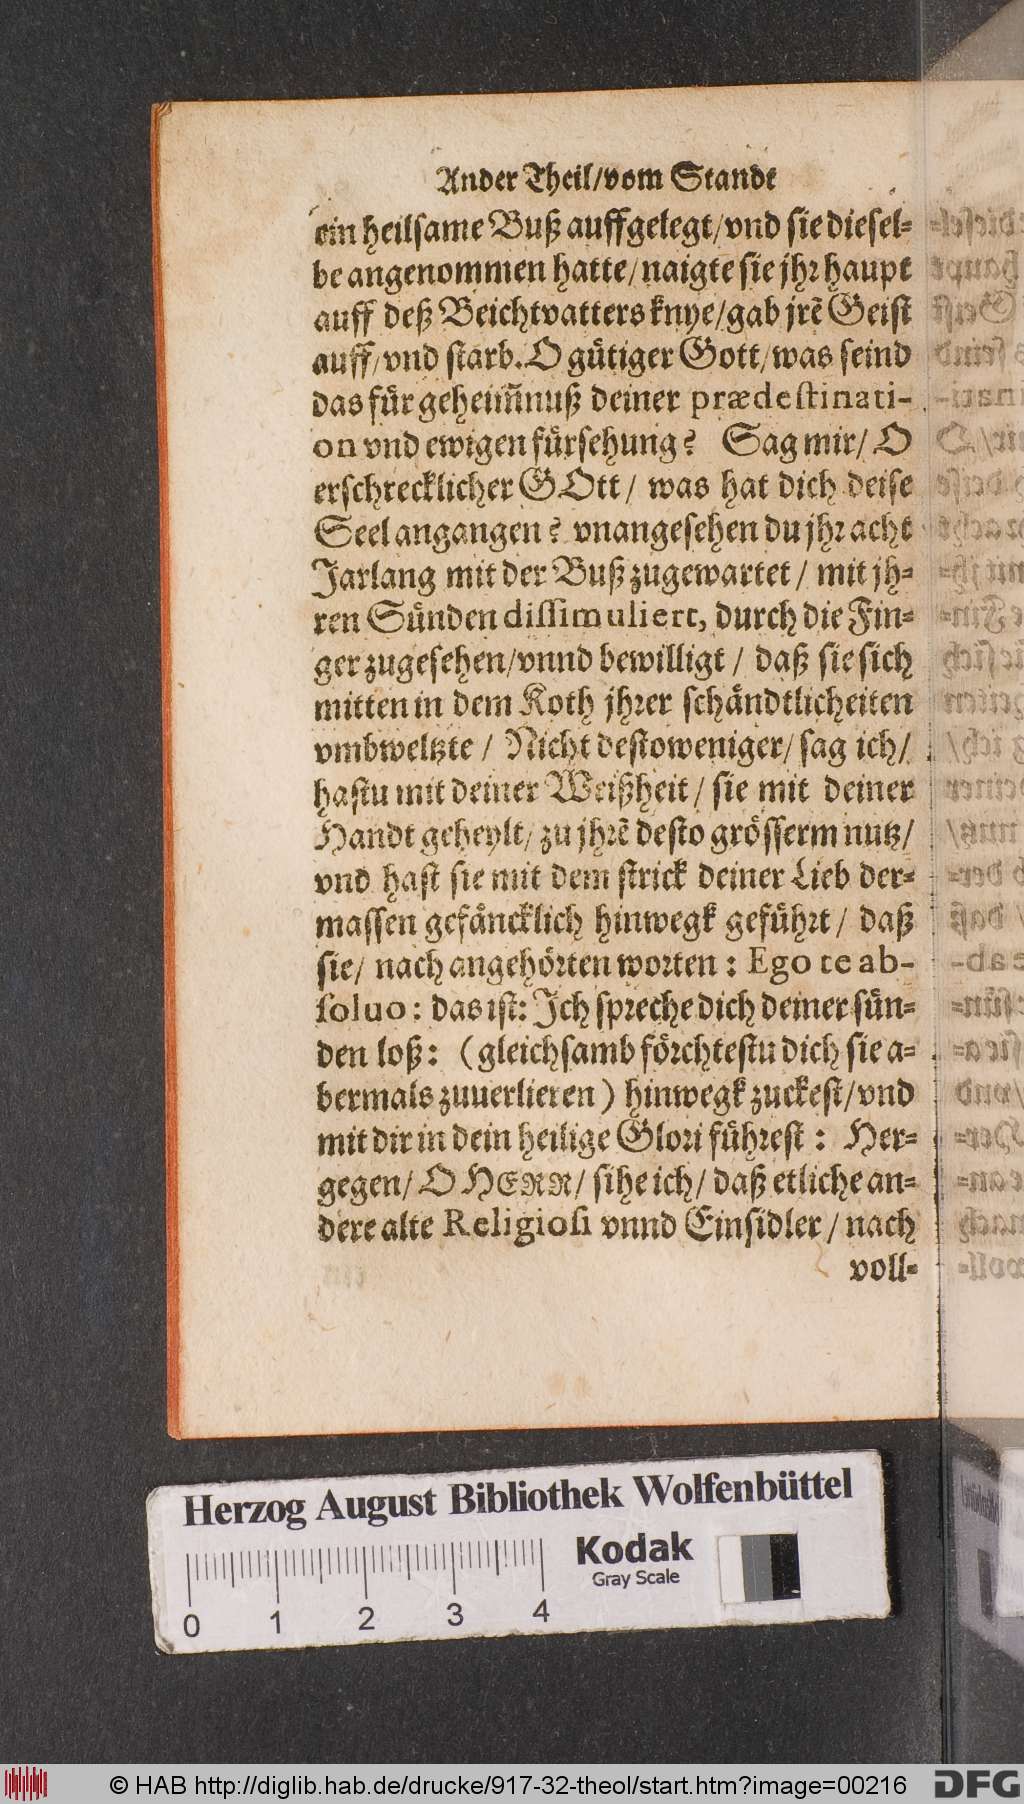 Ander Theil/vom Stande
ein heilsame Buß auffgelegt/vnd sie diesel-
be angenommen hatte/naigte sie jhr haupt
auff deß Beichtvatters knye/gab jrẽ Geist
auff/vnd starb. O gůtiger Gott/was seind
das fůr geheim̃nuß deiner prædestinati-
on vnd ewigen fůrsehung? Sag mir/ O
erschrecklicher GOtt/ was hat dich deise
Seel angangen? vnangesehen du jhr acht
Jarlang mit der Buß zugewartet/ mit jh-
ren Sůnden dissimuliert, durch die Fin-
ger zugesehen/vnnd bewilligt/ daß sie sich
mitten in dem Koth jhrer schåndtlicheiten
vmbweltzte/ Nicht destoweniger/ sag ich/
hastu mit deiner Weißheit/ sie mit deiner
Handt geheylt/ zu jhrẽ desto grôsserm nutz/
vnd hast sie mit dem strick deiner Lieb der-
massen gefåncklich hinwegk gefůhrt/ daß
sie/ nach angehôrten worten: Ego te ab-
soluo: das ist: Jch spreche dich deiner sůn-
den loß: (gleichsamb fôrchtestu dich sie a-
bermals zuuerlieren) hinwegk zuckest/vnd
mit dir in dein heilige Glori fůhrest: Her-
gegen/ O HERR/ sihe ich/ daß etliche an-
dere alte Religiosi vnnd Einsidler/ nach
voll-
Herzog August Bibliothek Wolfenbüttel
Kodak
Gray Scale
0 1 2 3 4
© HAB http://diglib.hab.de/drucke/917-32-theol/start.htm?image=00216
DFG